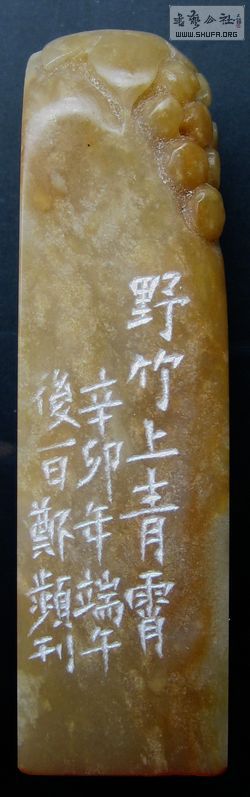 野竹上青霄
辛卯年端午
後一日鄭頻刊
書藝公社
WWW.SHUFA.ORG